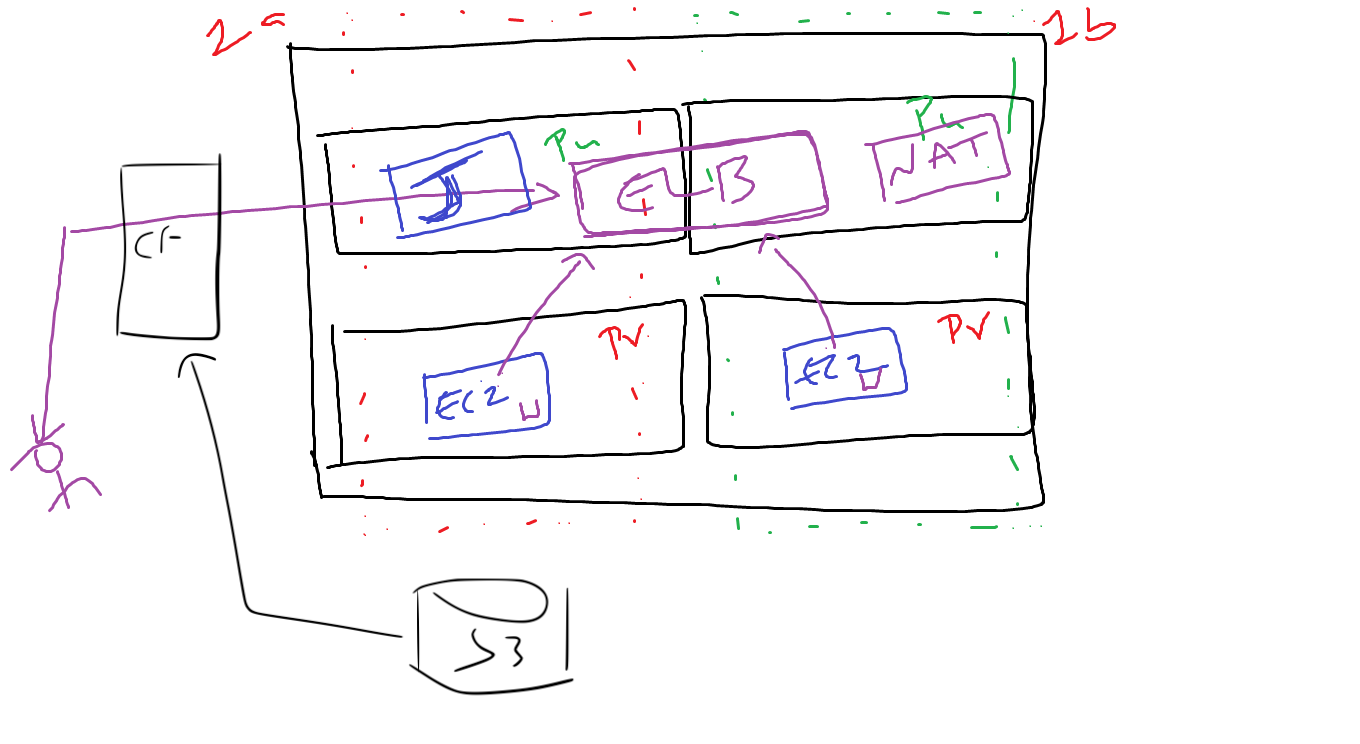 2a
1b
Pu
Pu
J
ELB
NAT
CF
Pv
Pv
EC2 W
EC2 W
S3